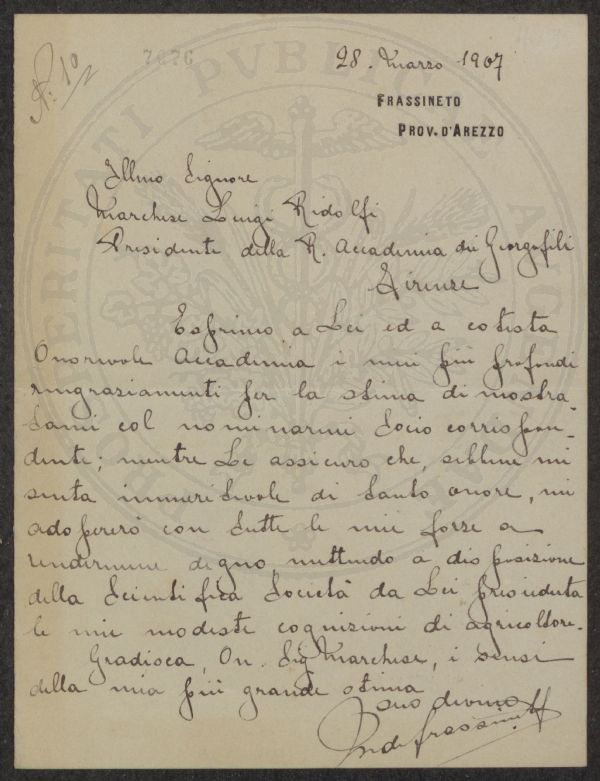 N: 10
28. Marzo 1907
FRASSINETO
PROV. D'AREZZO
Illmo Signore
Marchese Luigi Ridolfi
Presidente della R. Accademia dei Georgofili
Firenze
Esprimo a Lei ed a cotesta
Onorevole Accademia i miei più profondi
ringraziamenti per la stima dimostra-
tami col nominarmi Socio corrispon-
dente; mentre Le assicuro che, sebbene mi
senta immeritevole di tanto onore, mi
adopererò con tutte le mie forze a
rendermene degno, mettendo a disposizione
della Scientifica Società da Lei presieduta
le mie modeste cognizioni di agricoltore.
Gradisca, On. Sig Marchese, i sensi
della mia più grande stima
suo devmo
di Frassineto
PUBLICAE